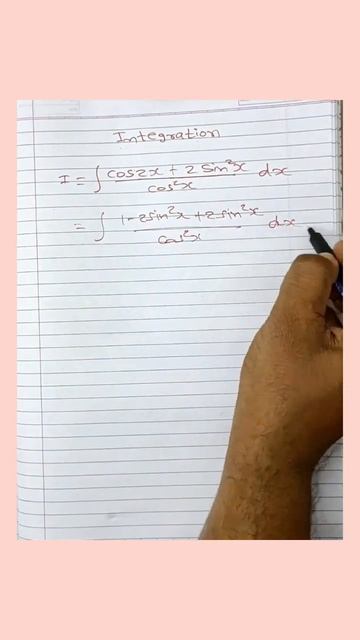 Integration
I = ∫ cos2x + 2 sin²x / cos²x dx
= ∫ 1 - 2sin²x + 2sin²x / cos²x dx